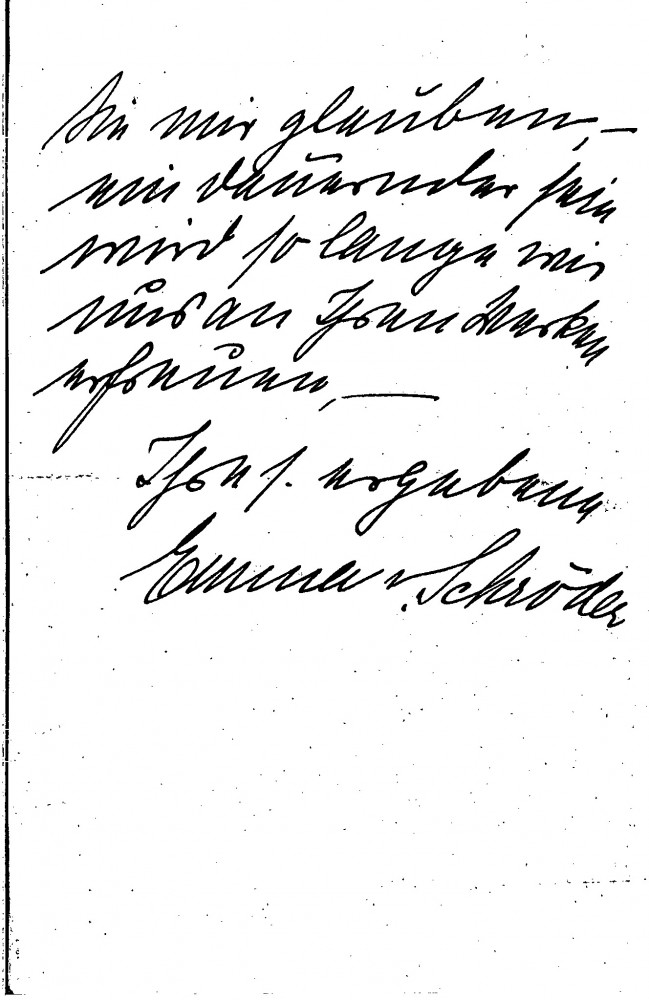 Sie mir glauben, –
ein dauernder sein
wird so lange wir
uns an Ihren Werken
erfreuen, —
Ihre s. ergebene
Emma v. Schröder